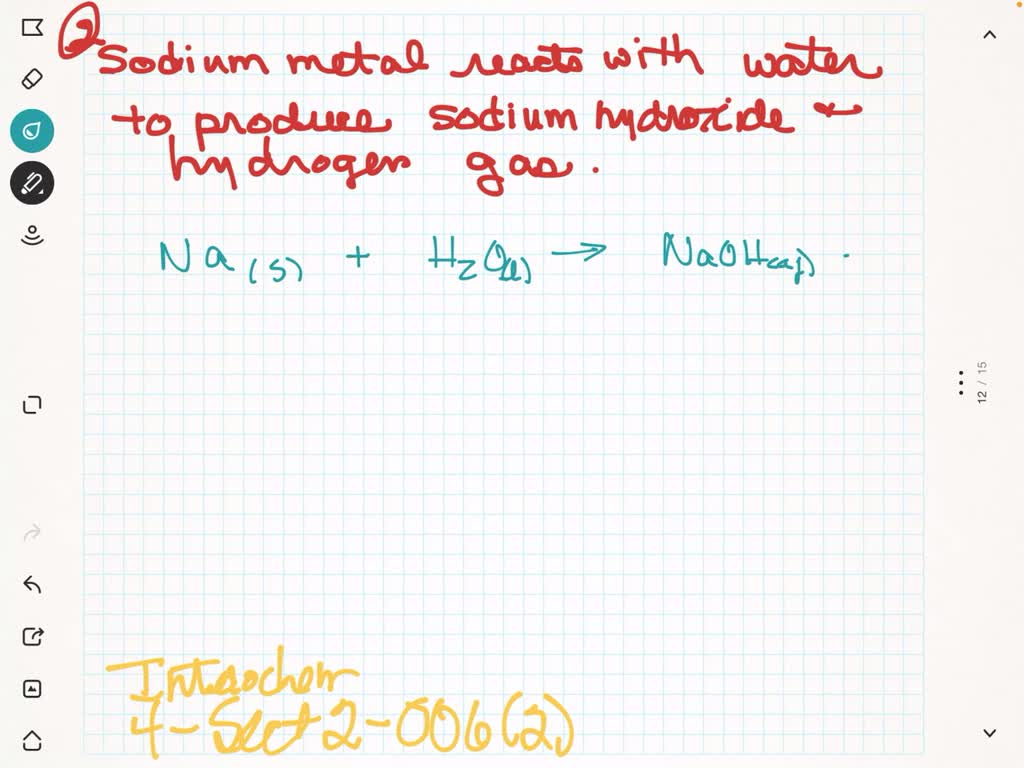 2 Sodium metal reacts with water
to produce sodium hydroxide &
hydrogen gas.
Na(s) + H2O(l) → NaOH(aq)
12 / 15
Introchem
4-Sect 2-006(2)